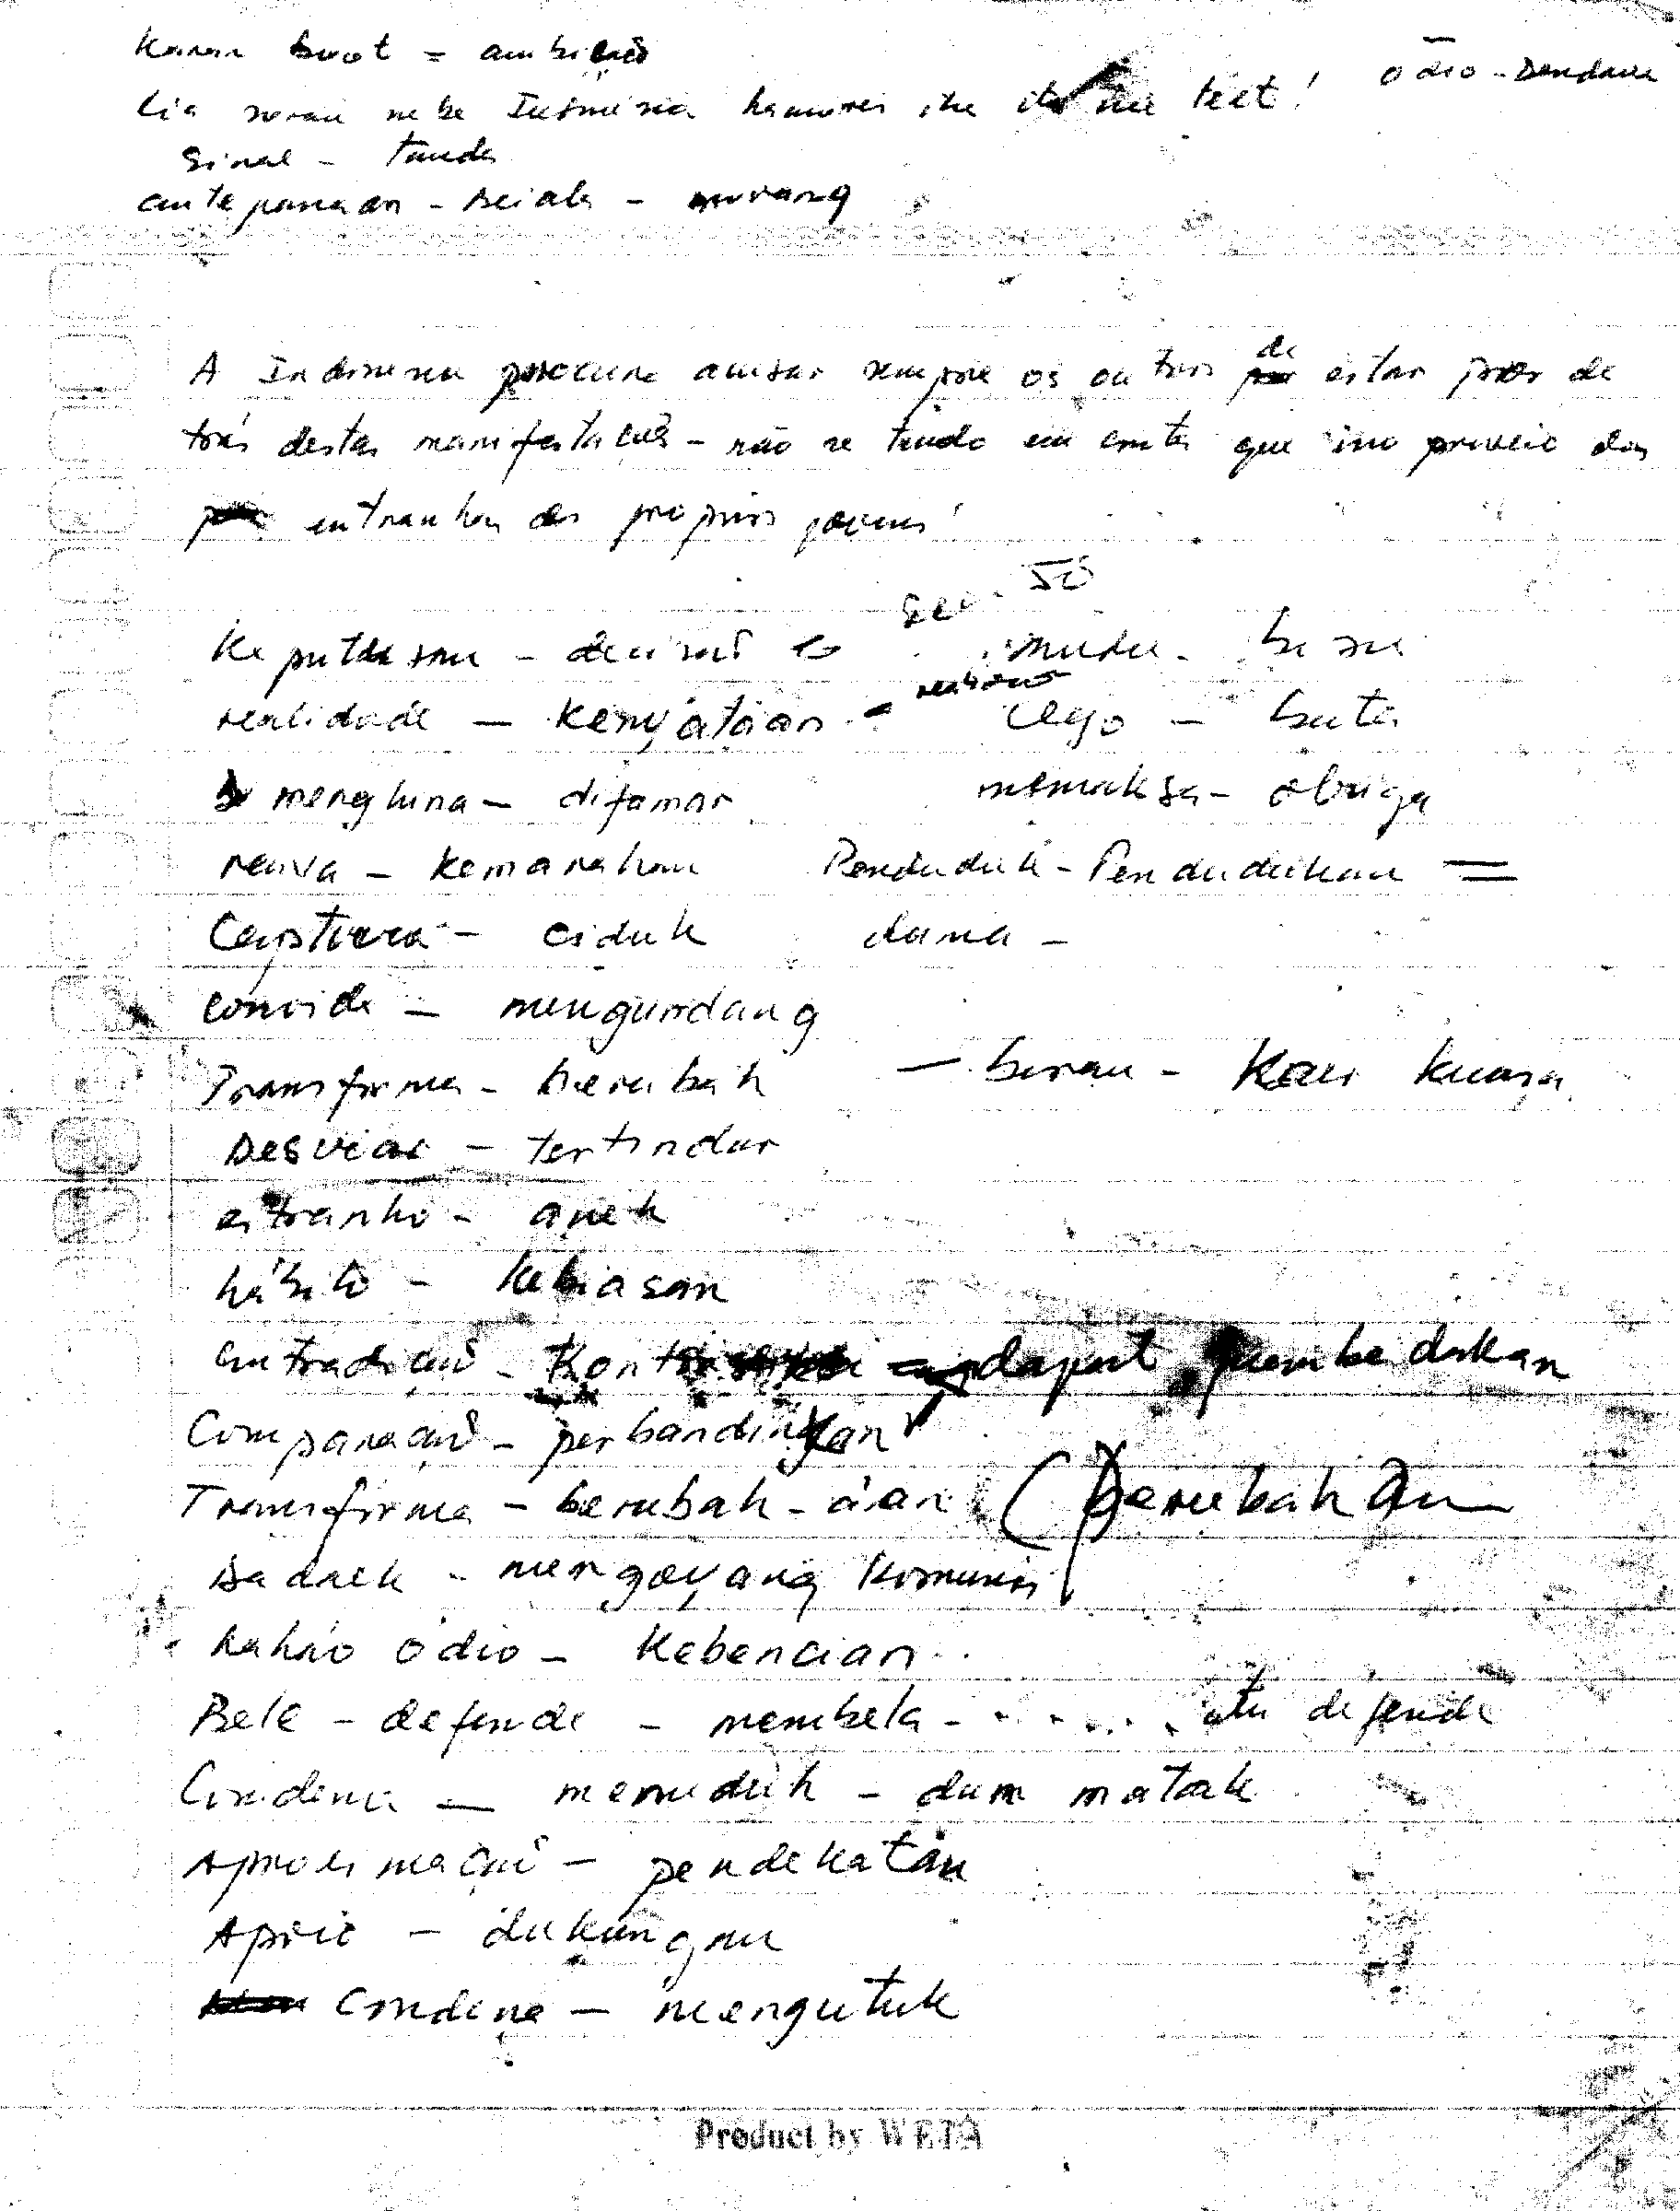 Kanan buot = ambição
ódio - Dendam
lia nebe Indonesia hamosu ita teet!
Sinal - tanda
antepassado - murang
A Indonesia procura acusar sempre os outros de estar por de
trás destas manifestações - não se tendo em conta que isso proveio das
entranhas dos proprios jovens!
Só
Keputusan - decisão
muda - bisu
realidade - Kenyataan -
Cego - buta
menghina - difamar
memaksa - obriga
raiva - Kemarahan
Penduduk - Pendudukan =
Captura - ciduk
dama -
Convida - mengundang
Transforma - berubah
- beran - Kaer kuasa
Desviar - tertindar
estranho - aneh
hábito - kebiasan
Contradição - dapat
Comparação - perbandingan
Transforma - berubah - áan (Perubahan
sadaek - mengoyang Komunis
hahno ódio - Kebencian
Bele - defende - membela - atu defende
Condena - menuduh - dun matak
Aproximação - pendekatan
Apoio - dukungan
Condena - mengutuk
Product by WETA